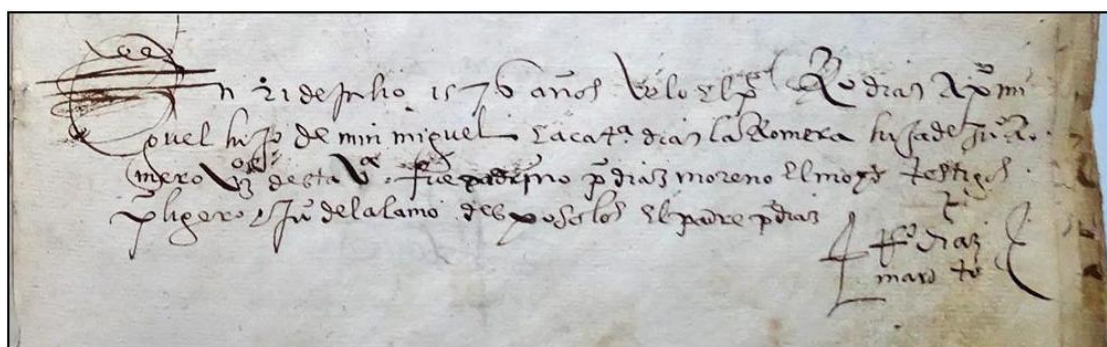 En 21 de Julio 1576 años Velo el pe Ro diaz A po mi
guel hijo de min miguel y a cata diaz la Romera hija de Juo Ro
mero Vzos desta Va fue padrino po diaz moreno el moço testigos
po ligero y Juo del alamo desposolos el padre po diaz
fo diaz
maroto